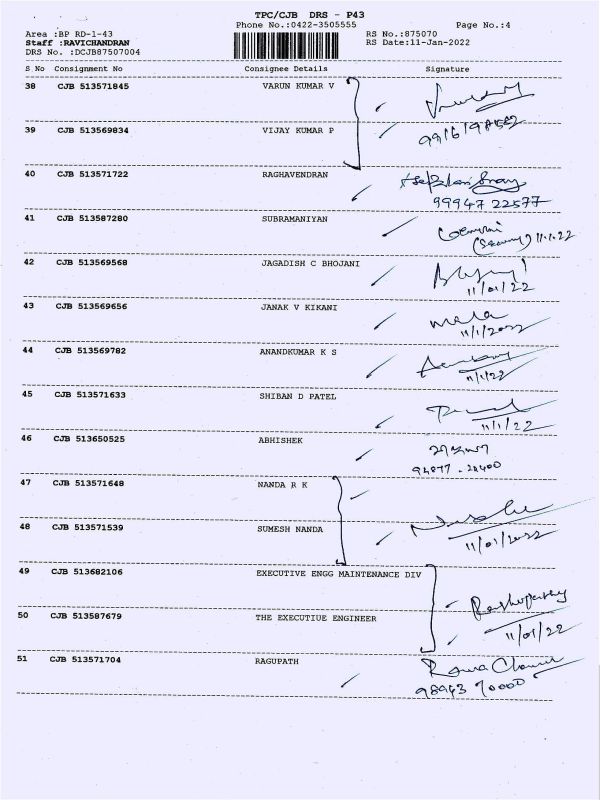 TPC/CJB DRS - P43
Phone No.:0422-3505555
Page No.:4
Area :BP RD-1-43
RS No.:875070
Staff :RAVICHANDRAN
RS Date:11-Jan-2022
DRS No. :DCJB87507004
S No Consignment No Consignee Details Signature
38 CJB 513571845 VARUN KUMAR V
39 CJB 513569834 VIJAY KUMAR P
40 CJB 513571722 RAGHAVENDRAN
99947 22577
41 CJB 513587280 SUBRAMANIYAN
11.1.22
42 CJB 513569568 JAGADISH C BHOJANI
11/01/22
43 CJB 513569656 JANAK V KIKANI
mala
11/1/2022
44 CJB 513569782 ANANDKUMAR K S
11/1/22
45 CJB 513571633 SHIBAN D PATEL
11/1/22
46 CJB 513650525 ABHISHEK
47 CJB 513571648 NANDA R K
48 CJB 513571539 SUMESH NANDA
11/01/2022
49 CJB 513682106 EXECUTIVE ENGG MAINTENANCE DIV
50 CJB 513587679 THE EXECUTIUE ENGINEER
11/01/22
51 CJB 513571704 RAGUPATH
98943 70000